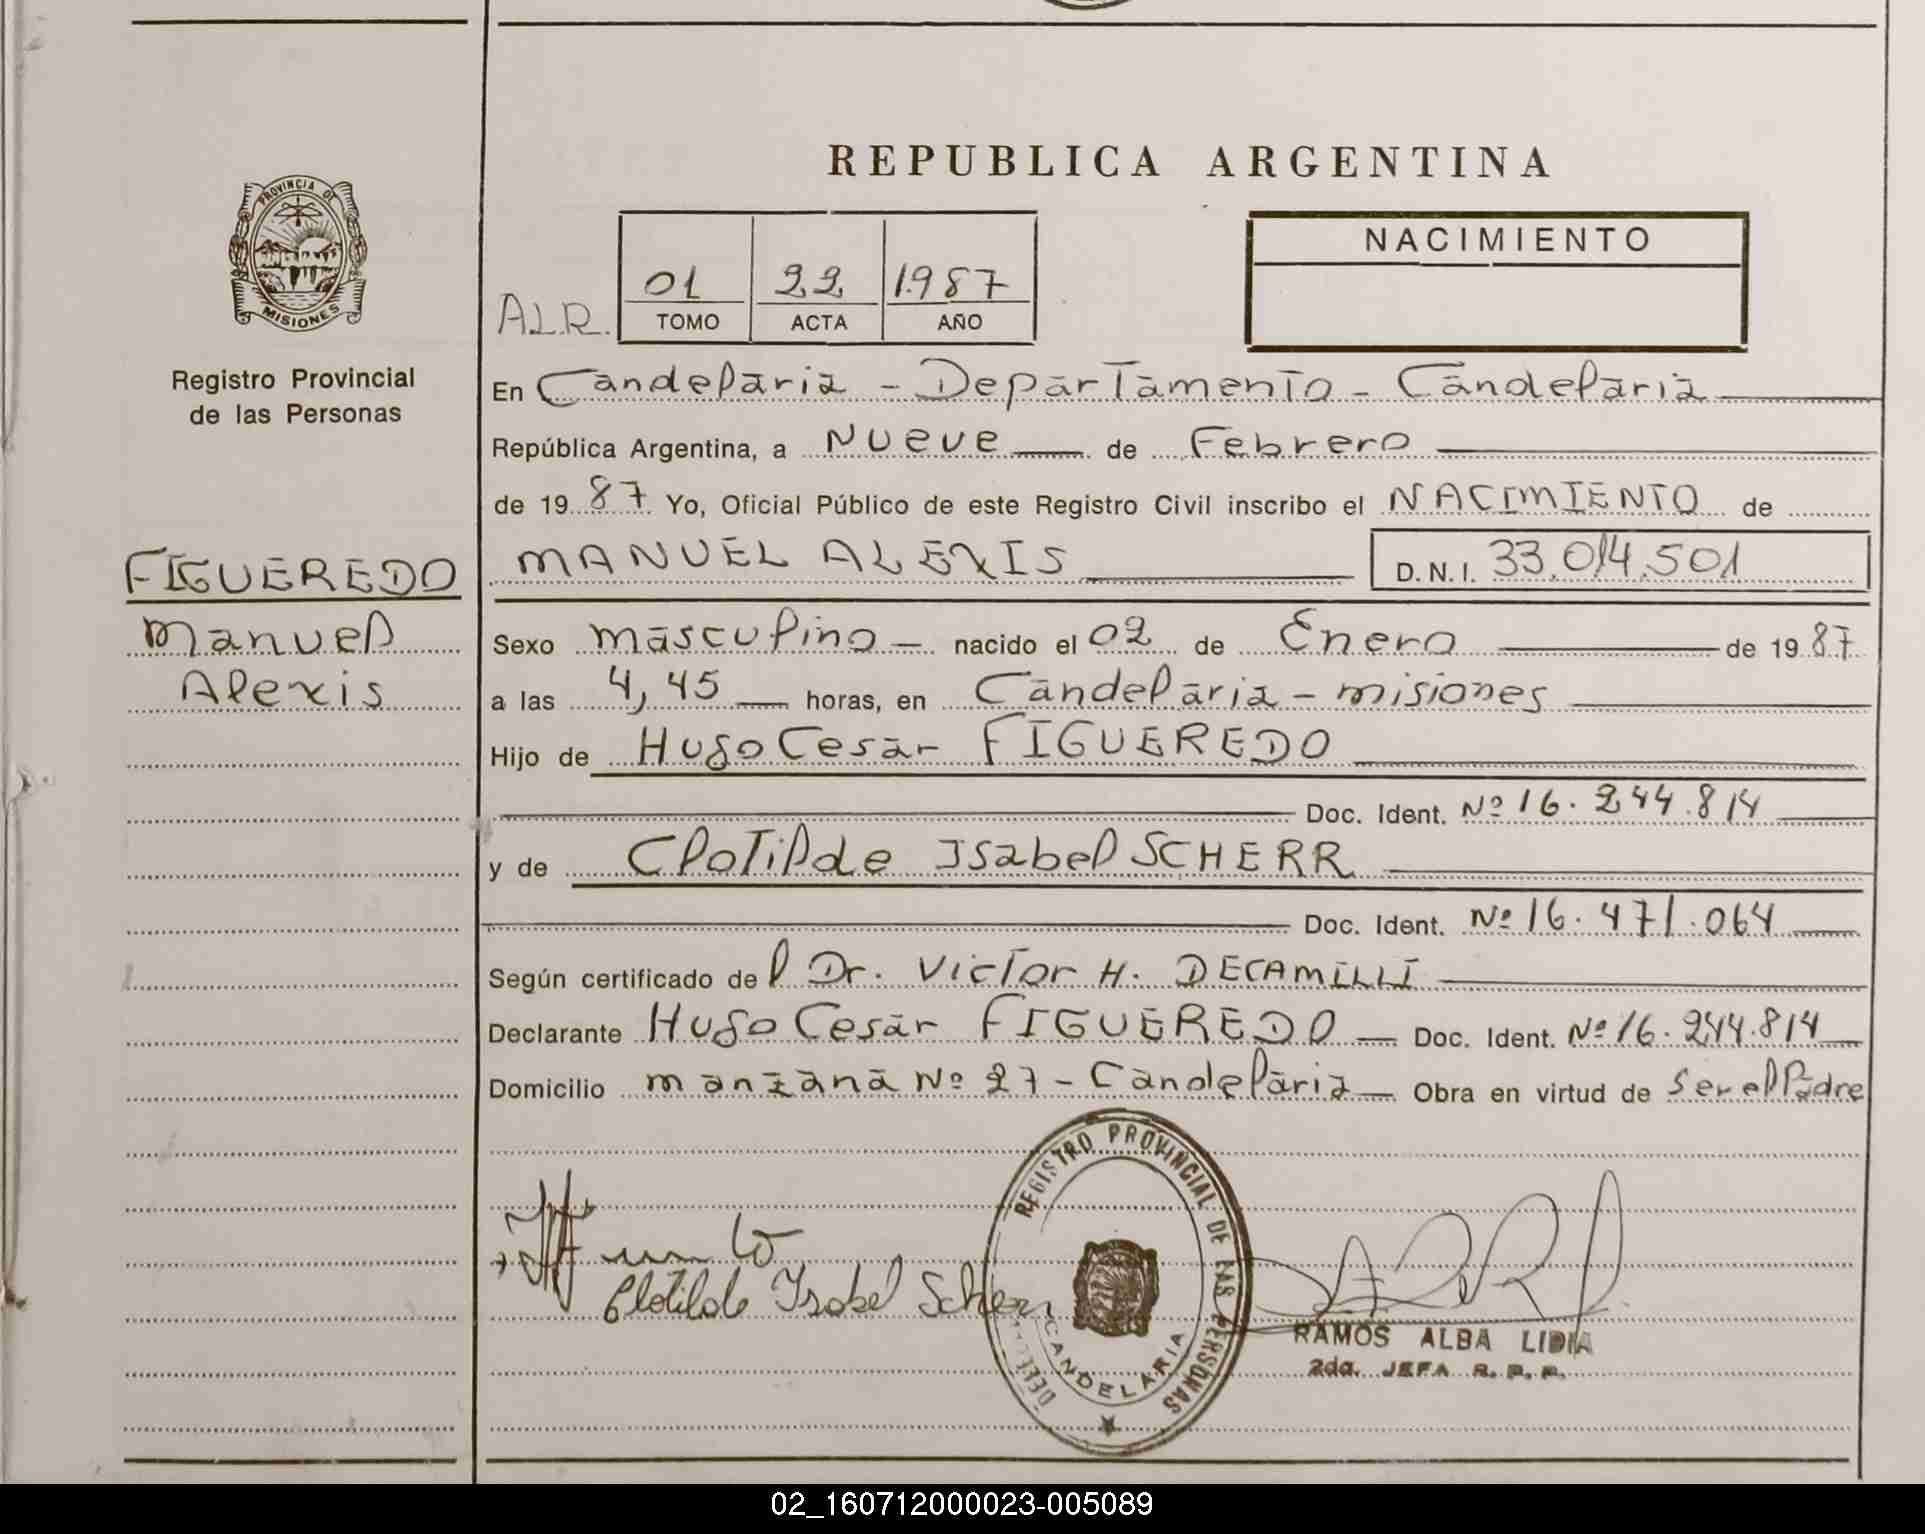 REPUBLICA ARGENTINA
PROVINCIA DE
MISIONES
Registro Provincial
de las Personas
NACIMIENTO
A.L.R. 01 22 1.987
TOMO ACTA AÑO
En Candelaria - Departamento - Candelaria
República Argentina, a Nueve de Febrero
de 19 87 Yo, Oficial Público de este Registro Civil inscribo el NACIMIENTO de
FIGUEREDO
MANUEL ALEXIS D.N.I. 33.014.501
Manuel
Alexis
Sexo masculino - nacido el 02 de Enero de 19 87
a las 4,45 horas, en Candelaria - misiones
Hijo de Hugo Cesar FIGUEREDO
Doc. Ident. Nº 16.244.814
y de Clotilde Isabel SCHERR
Doc. Ident. Nº 16.471.064
Según certificado del Dr. Victor H. DECAMILLI
Declarante Hugo Cesar FIGUEREDO Doc. Ident. Nº 16.244.814
Domicilio manzana Nº 27 - Candelaria Obra en virtud de Ser el Padre
REGISTRO PROVINCIAL DE LAS PERSONAS
CANDELARIA
Clotilde Isabel Scherr
RAMOS ALBA LIDIA
2da. JEFA R. P. P.
02_160712000023-005089